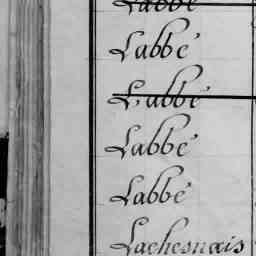 Labbé
Labbé
Labbé
Labbé
Labbé
Lachesnais